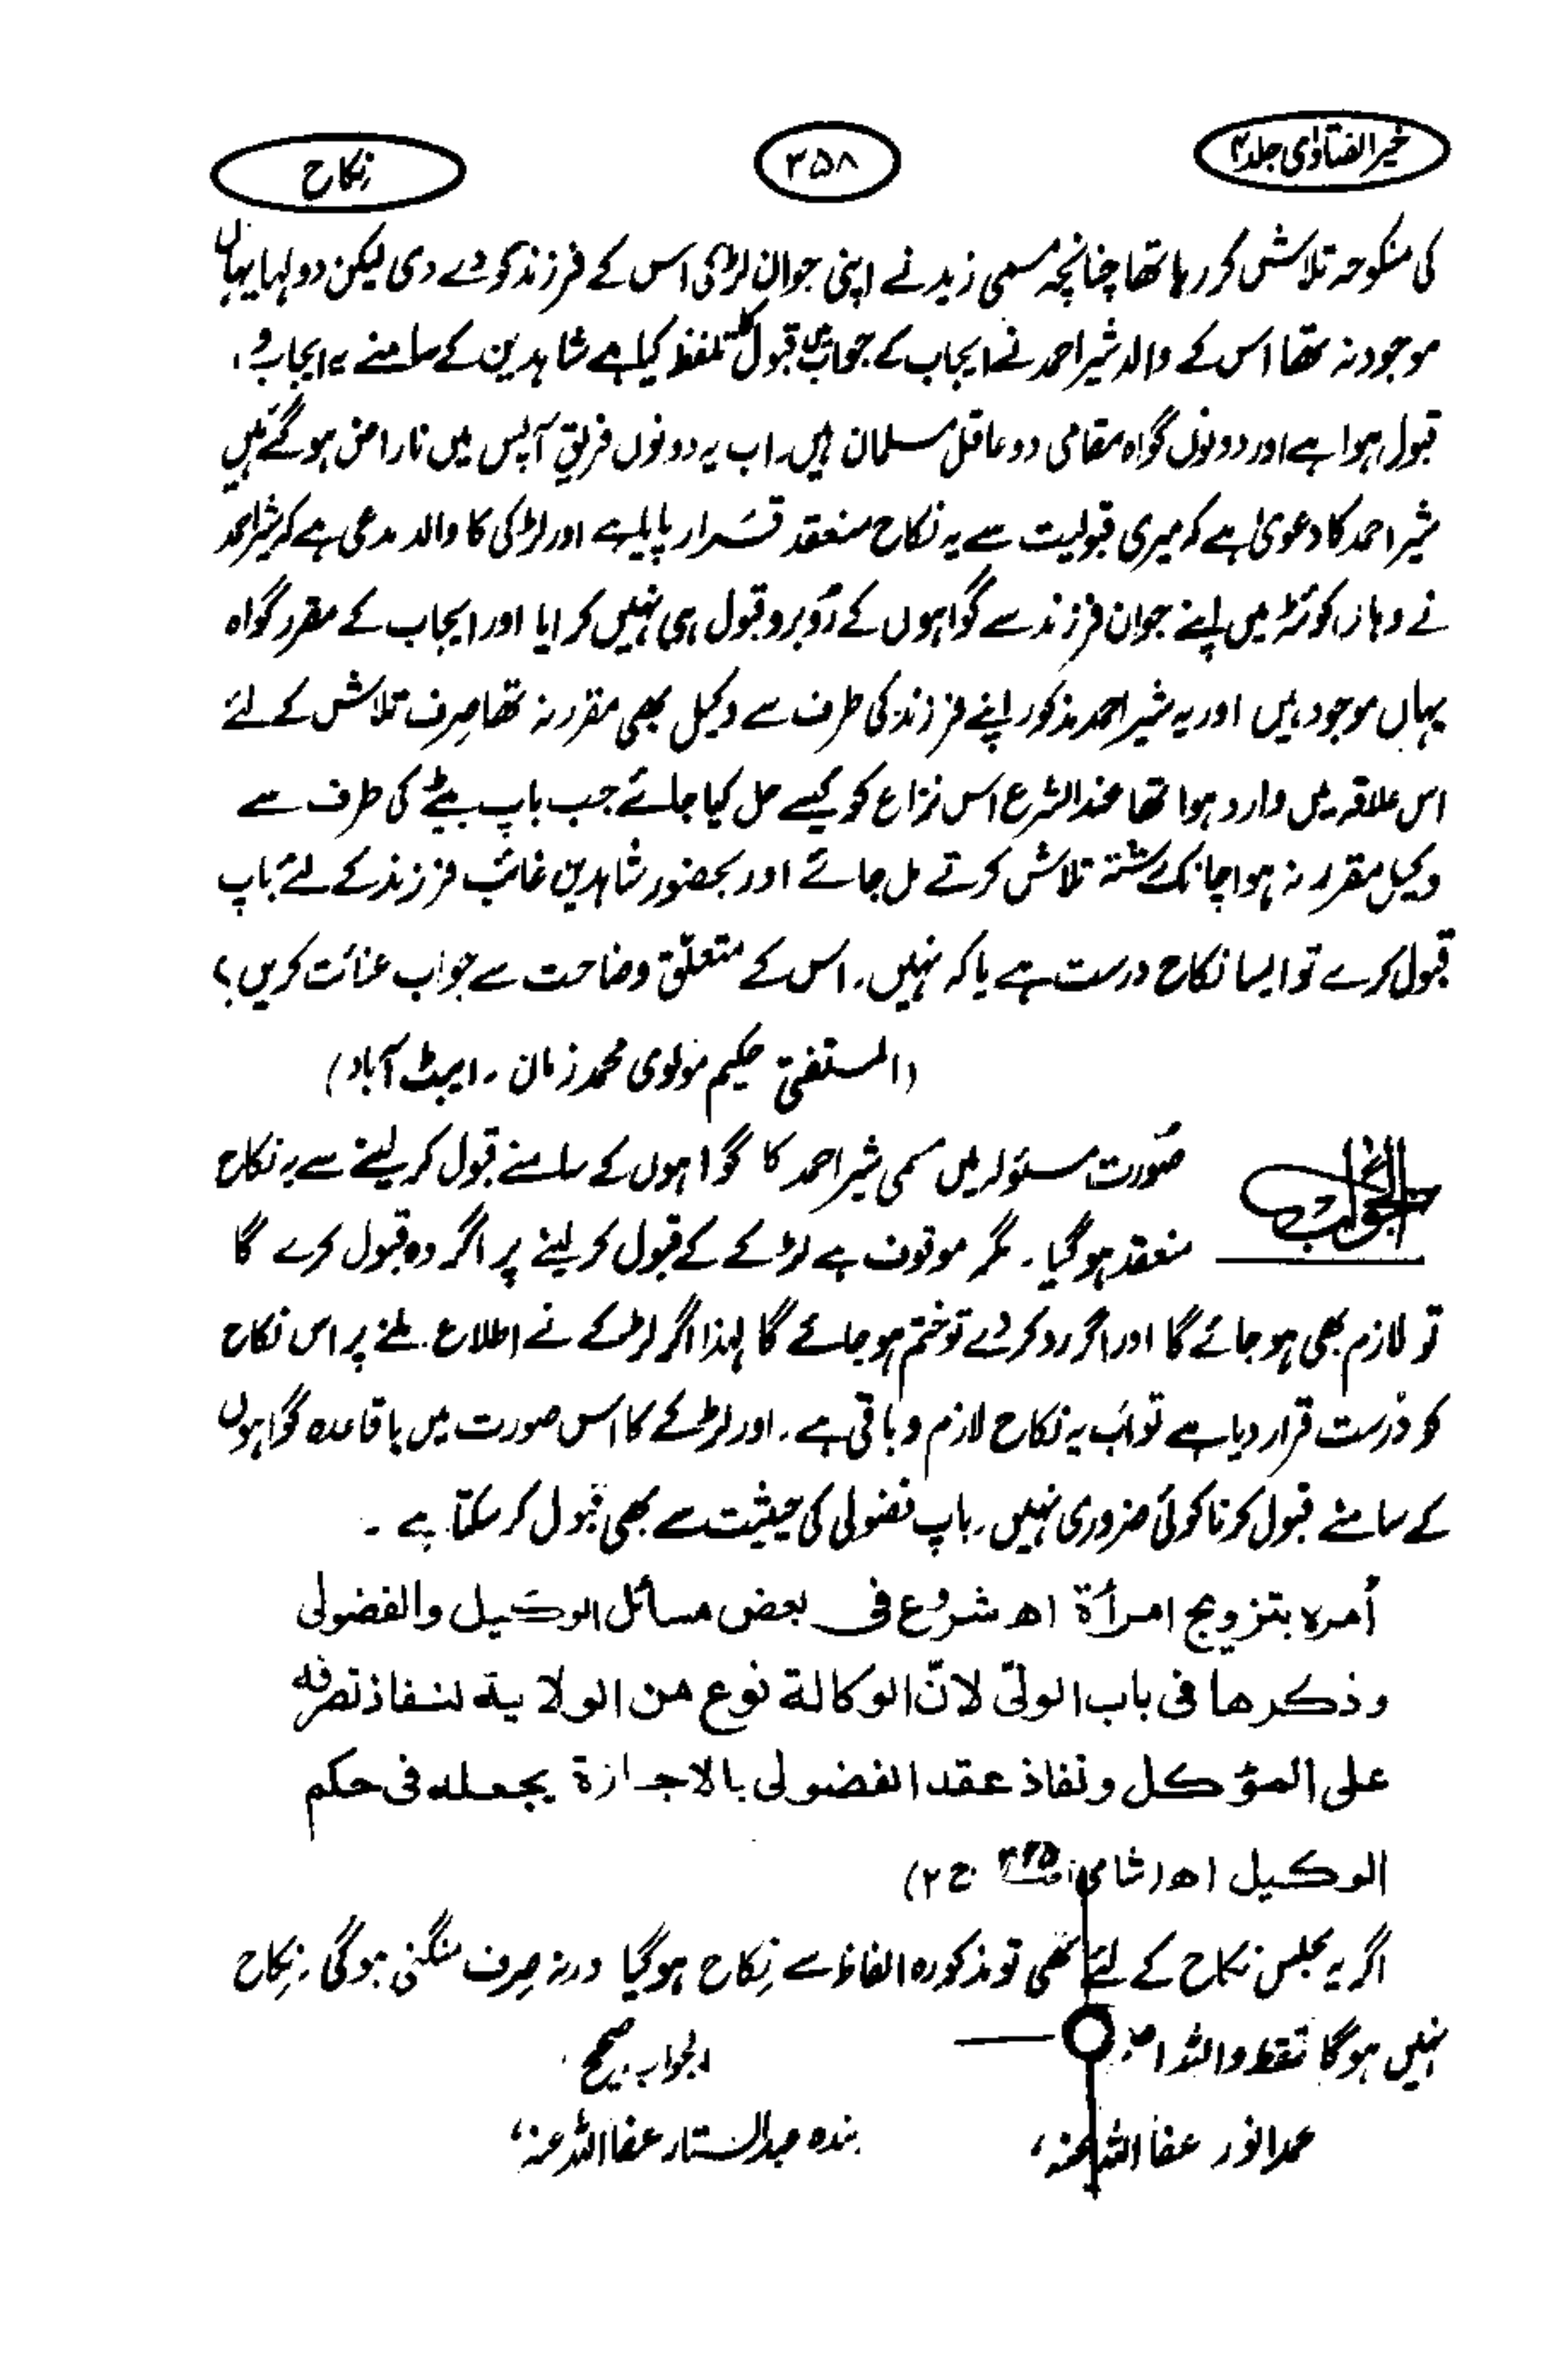 خیر الفتاوٰی جلد۴
۳۵۸
نکاح
کی منکوحہ تلاش کر رہا تھا چنانچہ مسمی زید نے اپنی جوان لڑکی اس کے فرزند کو دے دی لیکن دولہا یہاں
موجود نہ تھا اس کے والد شیر احمد نے ایجاب کے جواب میں قبول تلفظ کیا ہے شاہدین کے سامنے یہ ایجاب و
قبول ہوا ہے اور دونوں گواہ مقامی دو عاقل مسلمان ہیں۔ اب یہ دونوں فریق آپس میں ناراض ہو گئے ہیں
شیر احمد کا دعویٰ ہے کہ میری قبولیت سے یہ نکاح منعقد قرار پایا ہے اور لڑکی کا والد مدعی ہے کہ شیر احمد
نے وہاں کوئٹہ میں اپنے جوان فرزند سے گواہوں کے رُوبرو قبول ہی نہیں کرایا اور ایجاب کے مقرر گواہ
یہاں موجود ہیں اور یہ شیر احمد مذکور اپنے فرزند کی طرف سے وکیل بھی مقرر نہ تھا صِرف تلاش کے لئے
اس علاقہ میں وارد ہوا تھا عند الشرع اس نزاع کو کیسے حل کیا جائے جب باپ بیٹے کی طرف سے
وکیل مقرر نہ ہو اچانک رشتہ تلاش کرتے مل جائے اور بحضور شاہدین غائب فرزند کے لئے باپ
قبول کرے تو ایسا نکاح درست ہے یا کہ نہیں۔ اس کے متعلق وضاحت سے جواب عنائت کریں؟
(المستفتی حکیم مولوی محمد زمان۔ ایبٹ آباد)
الجواب
صُورت مسئولہ میں مسمی شیر احمد کا گواہوں کے سامنے قبول کر لینے سے یہ نکاح
منعقد ہو گیا۔ مگر موقوف ہے لڑکے کے قبول کر لینے پر اگر وہ قبول کرے گا
تو لازم بھی ہو جائے گا اور اگر رد کر دے تو ختم ہو جائے گا لہٰذا اگر لڑکے نے اطلاع ملنے پر اس نکاح
کو دُرست قرار دیا ہے تو اب یہ نکاح لازم و باقی ہے۔ اور لڑکے کا اس صورت میں باقاعدہ گواہوں
کے سامنے قبول کرنا کوئی ضروری نہیں۔ باپ فضولی کی حیثیت سے بھی قبول کر سکتا ہے۔
أمره بتزويج امرأة اھ شروع فى بعض مسائل الوكيل والفضولى
وذكرها فى باب الولىّ لانّ الوكالة نوع من الولاية لنفاذ تصرفه
على المؤكل ونفاذ عقد الفضولى بالاجازة يجعله فى حكم
الوكيل اھ (شامی ج ۲)
اگر یہ مجلس نکاح کے لئے تھی تو مذکورہ الفاظ سے نِکاح ہو گیا ورنہ صِرف منگنی ہو گی۔ نِکاح
نہیں ہو گا فقط واللہ اعلم
الجواب صحیح
محمد انور عفا اللہ عنہ،
بندہ عبدالستار عفا اللہ عنہ،